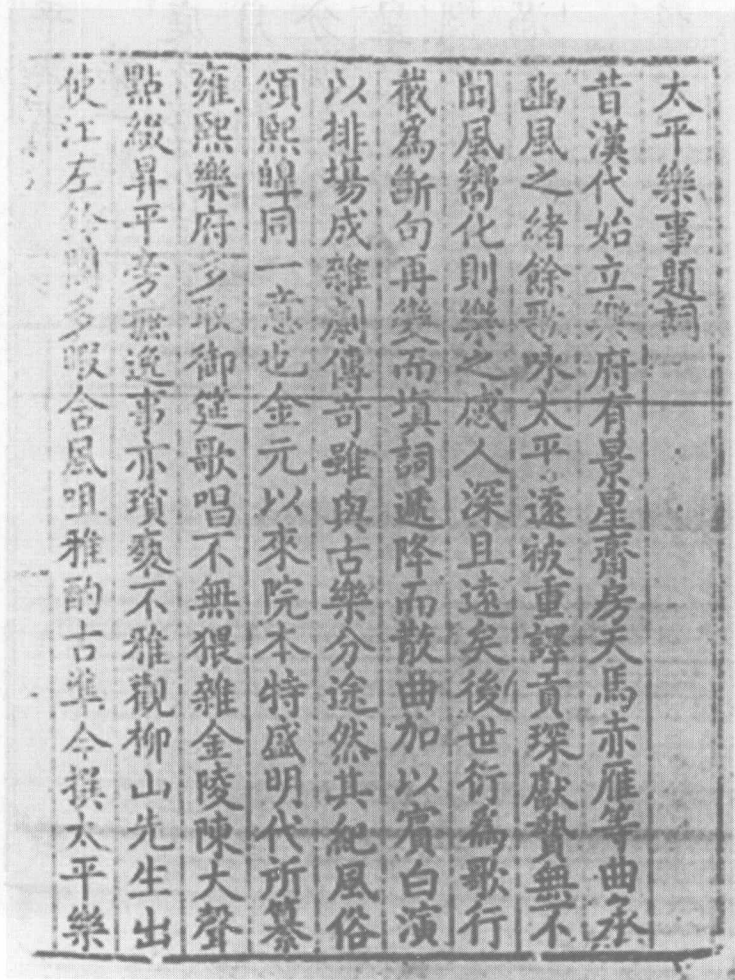 太平樂事題詞
昔漢代始立樂府有景星齋房天馬赤雁等曲承
豳風之緒餘歌咏太平遠被重譯貢琛獻贄無不
聞風嚮化則樂之感人深且遠矣後世衍爲歌行
截爲斷句再變而塡詞遞降而散曲加以賓白演
以排場成雜劇傳奇雖與古樂分途然其紀風俗
頌熙皥同一意也金元以來院本特盛明代所纂
雍熙樂府多取御筵歌唱不無猥雜金陵陳大聲
點綴昇平旁摭逸事亦瑣褻不雅觀柳山先生出
使江左鈴閣多暇含風咀雅酌古準今撰太平樂